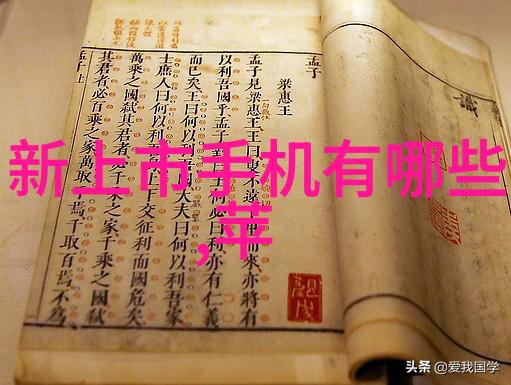 新上市手机有哪些
,苹
孟子
梁惠王
孟子見梁惠王王曰叟不遠而來亦將有
以利吾國乎孟子對曰王何必曰利亦有仁義
而已矣王曰何以利吾國大夫曰何以利吾家
士庶人曰何以利吾下交征利而國危矣
萬乘之國弒其君者必千乘之家千乘之國弒
其君者必百乘之家萬取千焉千取百焉不為
孟子上
头条 @爱我国学